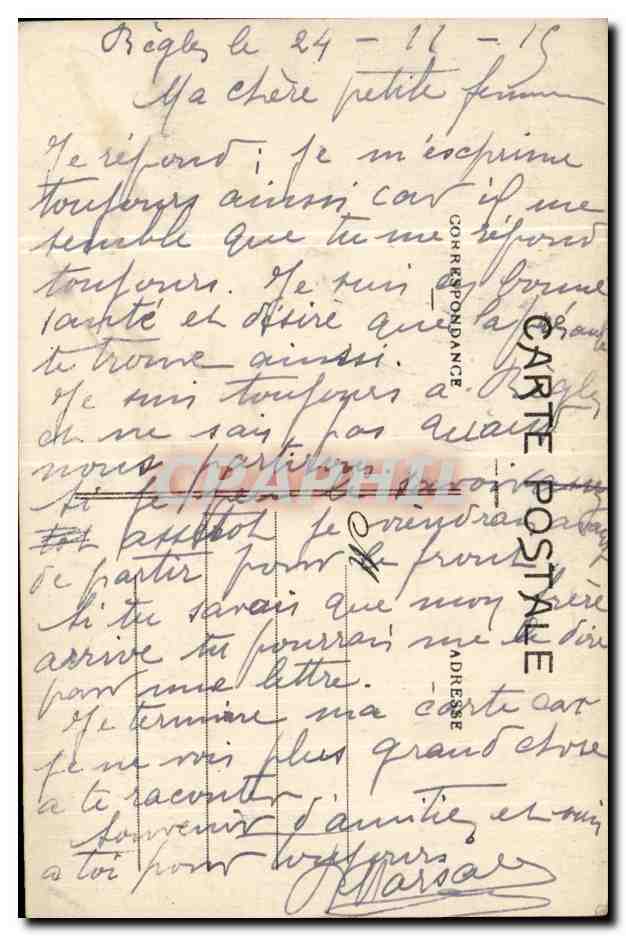 Bègles le 24 - 11 - 15
Ma chère petite femme
Je répond ; je m'exprime
toujours ainsi car il me
semble que tu me répond
toujours. Je suis en bonne
santé et désire que la présente
te trouve ainsi.
Je suis toujours a Bègles
et ne sais pas quand
nous partirons
Si je peu le savoir
assitot je viendrai avant
de partir pour le front
Si tu savais que mon frère
arrive tu pourrais me le dire
par une lettre.
Je termine ma carte car
je ne vois plus grand chose
a te raconter
Souvenir d'amitiés et suis
a toi pour toujours
CARTE POSTALE
CORRESPONDANCE
ADRESSE
CPAPHIL